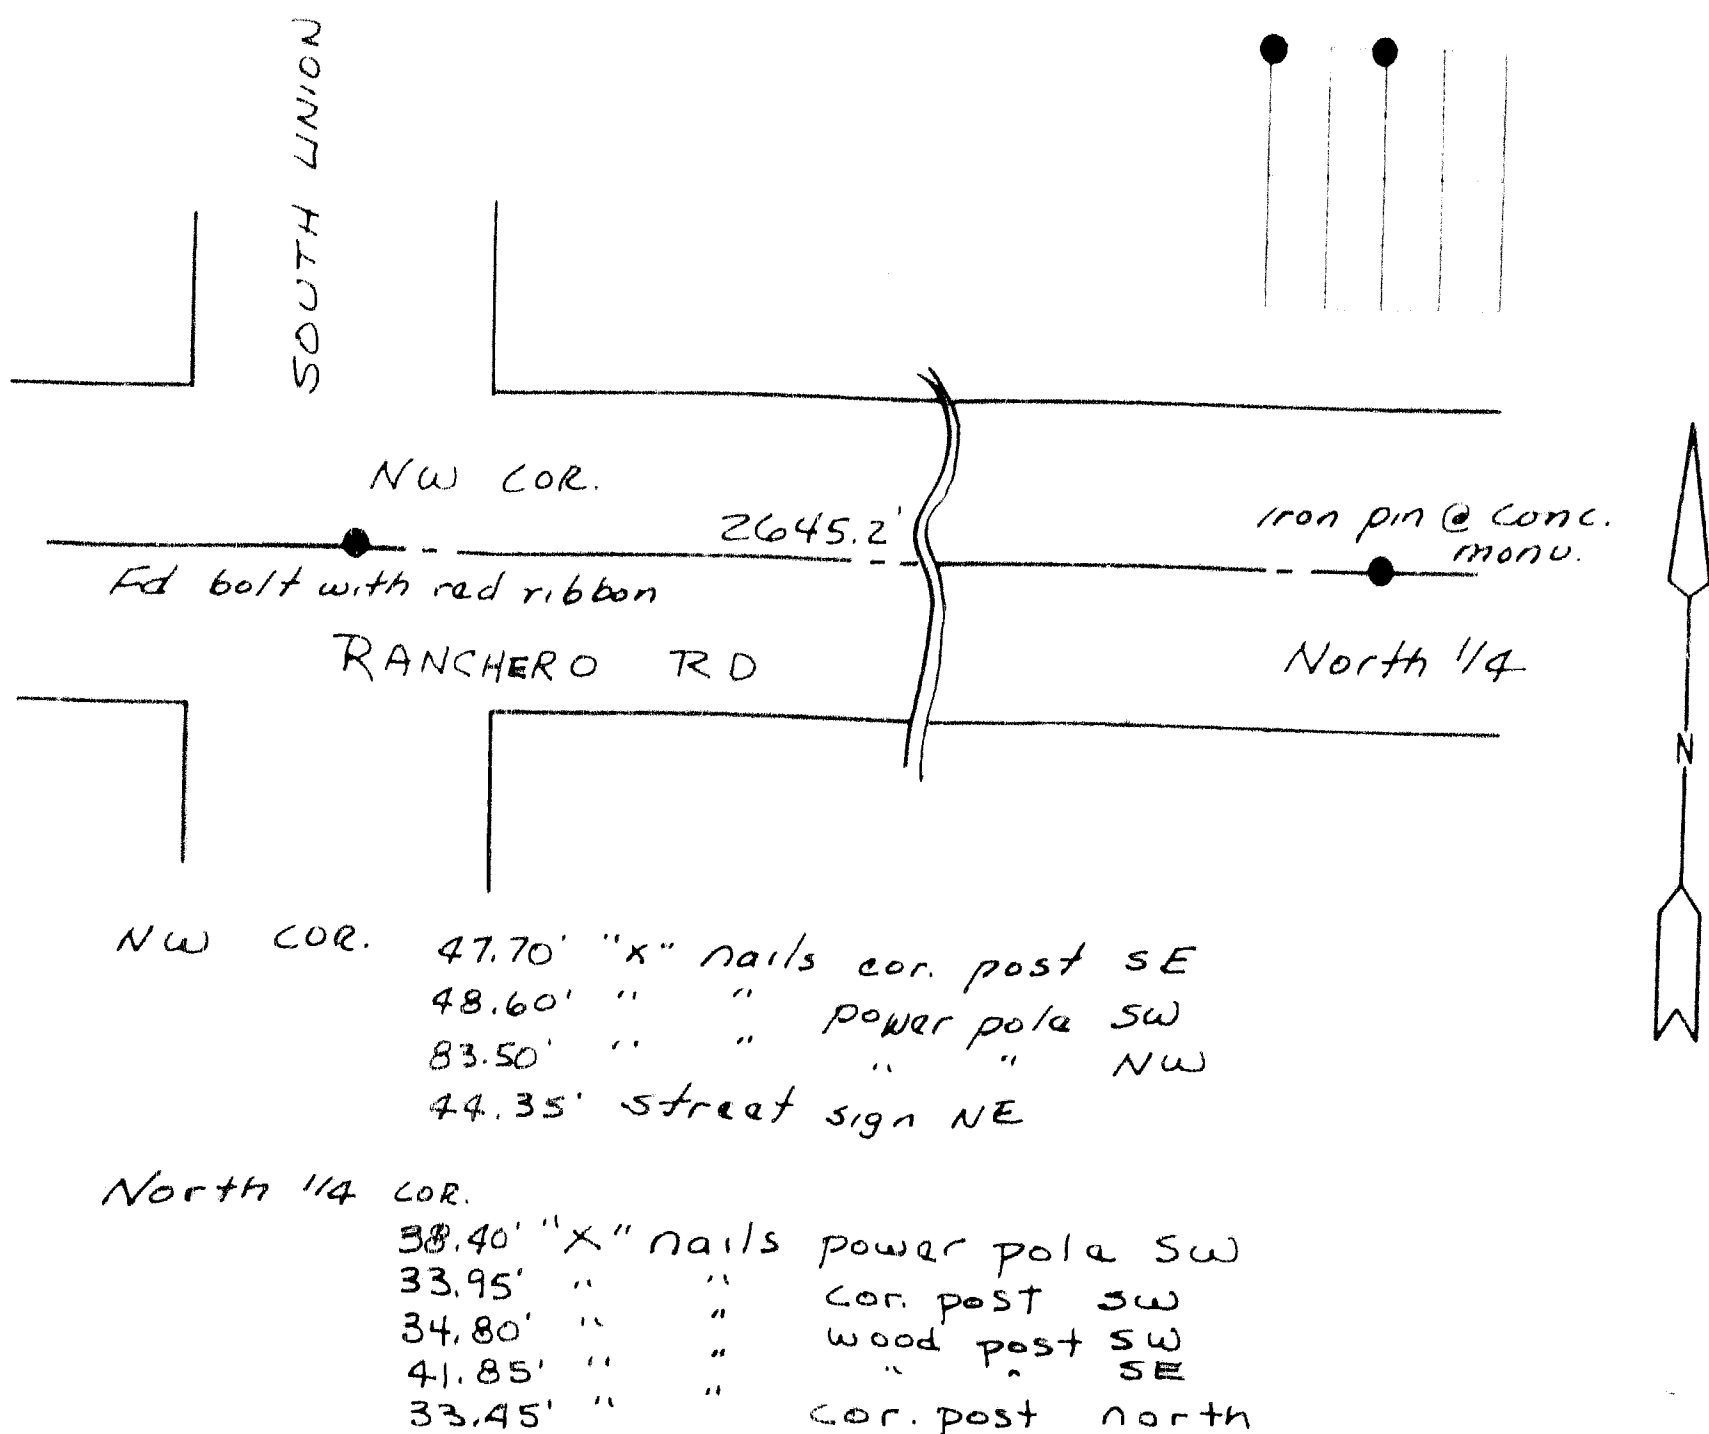 SOUTH UNION
NW COR.
2645.2'
Iron pin @ conc.
monu.
Fd bolt with red ribbon
RANCHERO RD
North 1/4
N
NW COR. 47.70' "x" nails cor. post SE
48.60' " " power pole SW
83.50' " " " " NW
44.35' street sign NE
North 1/4 COR.
38.40' "X" nails power pole SW
33.95' " " cor. post SW
34.80' " " wood post SW
41.85' " " " " SE
33.45' " " cor. post north